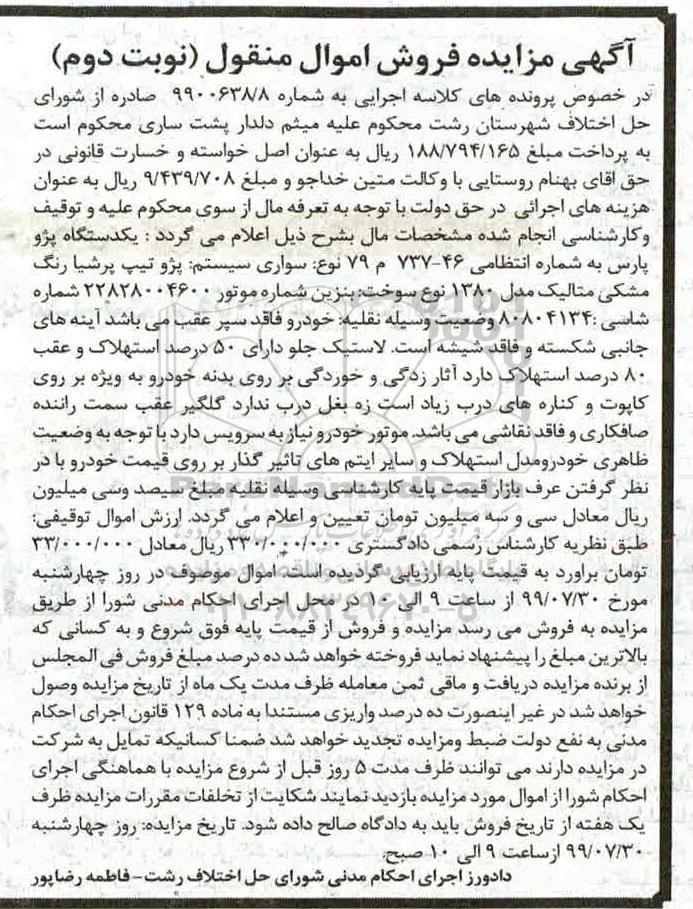 آگهی مزایده فروش اموال منقول (نوبت دوم)
در خصوص پرونده های کلاسه اجرایی به شماره ۹۹۰۰۶۳۸/۸ صادره از شورای
حل اختلاف شهرستان رشت محکوم علیه میثم دلدار پشت ساری محکوم است
به پرداخت مبلغ ۱۸۸/۷۹۴/۱۶۵ ریال به عنوان اصل خواسته و خسارت قانونی در
حق اقای بهنام روستایی با وکالت متین خداجو و مبلغ ۹/۴۳۹/۷۰۸ ریال به عنوان
هزینه های اجرائی در حق دولت با توجه به تعرفه مال از سوی محکوم علیه و توقیف
وکارشناسی انجام شده مشخصات مال بشرح ذیل اعلام می گردد : یکدستگاه پژو
پارس به شماره انتظامی ۴۶-۷۳۷ م ۷۹ نوع: سواری سیستم: پژو تیپ پرشیا رنگ
مشکی متالیک مدل ۱۳۸۰ نوع سوخت: بنزین شماره موتور ۲۲۸۲۸۰۰۴۶۰۰ شماره
شاسی :۸۰۸۰۴۱۳۴ وضعیت وسیله نقلیه: خودرو فاقد سپر عقب می باشد آینه های
جانبی شکسته و فاقد شیشه است. لاستیک جلو دارای ۵۰ درصد استهلاک و عقب
۸۰ درصد استهلاک دارد آثار زدگی و خوردگی بر روی بدنه خودرو به ویژه بر روی
کاپوت و کناره های درب زیاد است زه بغل درب ندارد گلگیر عقب سمت راننده
صافکاری و فاقد نقاشی می باشد. موتور خودرو نیاز به سرویس دارد با توجه به وضعیت
ظاهری خودرومدل استهلاک و سایر ایتم های تاثیر گذار بر روی قیمت خودرو با در
نظر گرفتن عرف بازار قیمت پایه کارشناسی وسیله نقلیه مبلغ سیصد وسی میلیون
ریال معادل سی و سه میلیون تومان تعیین و اعلام می گردد. ارزش اموال توقیفی:
طبق نظریه کارشناس رسمی دادگستری ۳۳۰/۰۰۰/۰۰۰ ریال معادل ۳۳/۰۰۰/۰۰۰
تومان براورد به قیمت پایه ارزیابی گردیده است. اموال موصوف در روز چهارشنبه
مورخ ۹۹/۰۷/۳۰ از ساعت ۹ الی ۱۰ در محل اجرای احکام مدنی شورا از طریق
مزایده به فروش می رسد مزایده و فروش از قیمت پایه فوق شروع و به کسانی که
بالاترین مبلغ را پیشنهاد نماید فروخته خواهد شد ده درصد مبلغ فروش فی المجلس
از برنده مزایده دریافت و ماقی ثمن معامله ظرف مدت یک ماه از تاریخ مزایده وصول
خواهد شد در غیر اینصورت ده درصد واریزی مستندا به ماده ۱۲۹ قانون اجرای احکام
مدنی به نفع دولت ضبط ومزایده تجدید خواهد شد ضمنا کسانیکه تمایل به شرکت
در مزایده دارند می توانند ظرف مدت ۵ روز قبل از شروع مزایده با هماهنگی اجرای
احکام شورا از اموال مورد مزایده بازدید نمایند شکایت از تخلفات مقررات مزایده ظرف
یک هفته از تاریخ فروش باید به دادگاه صالح داده شود. تاریخ مزایده: روز چهارشنبه
۹۹/۰۷/۳۰ ازساعت ۹ الی ۱۰ صبح.
دادورز اجرای احکام مدنی شورای حل اختلاف رشت- فاطمه رضاپور